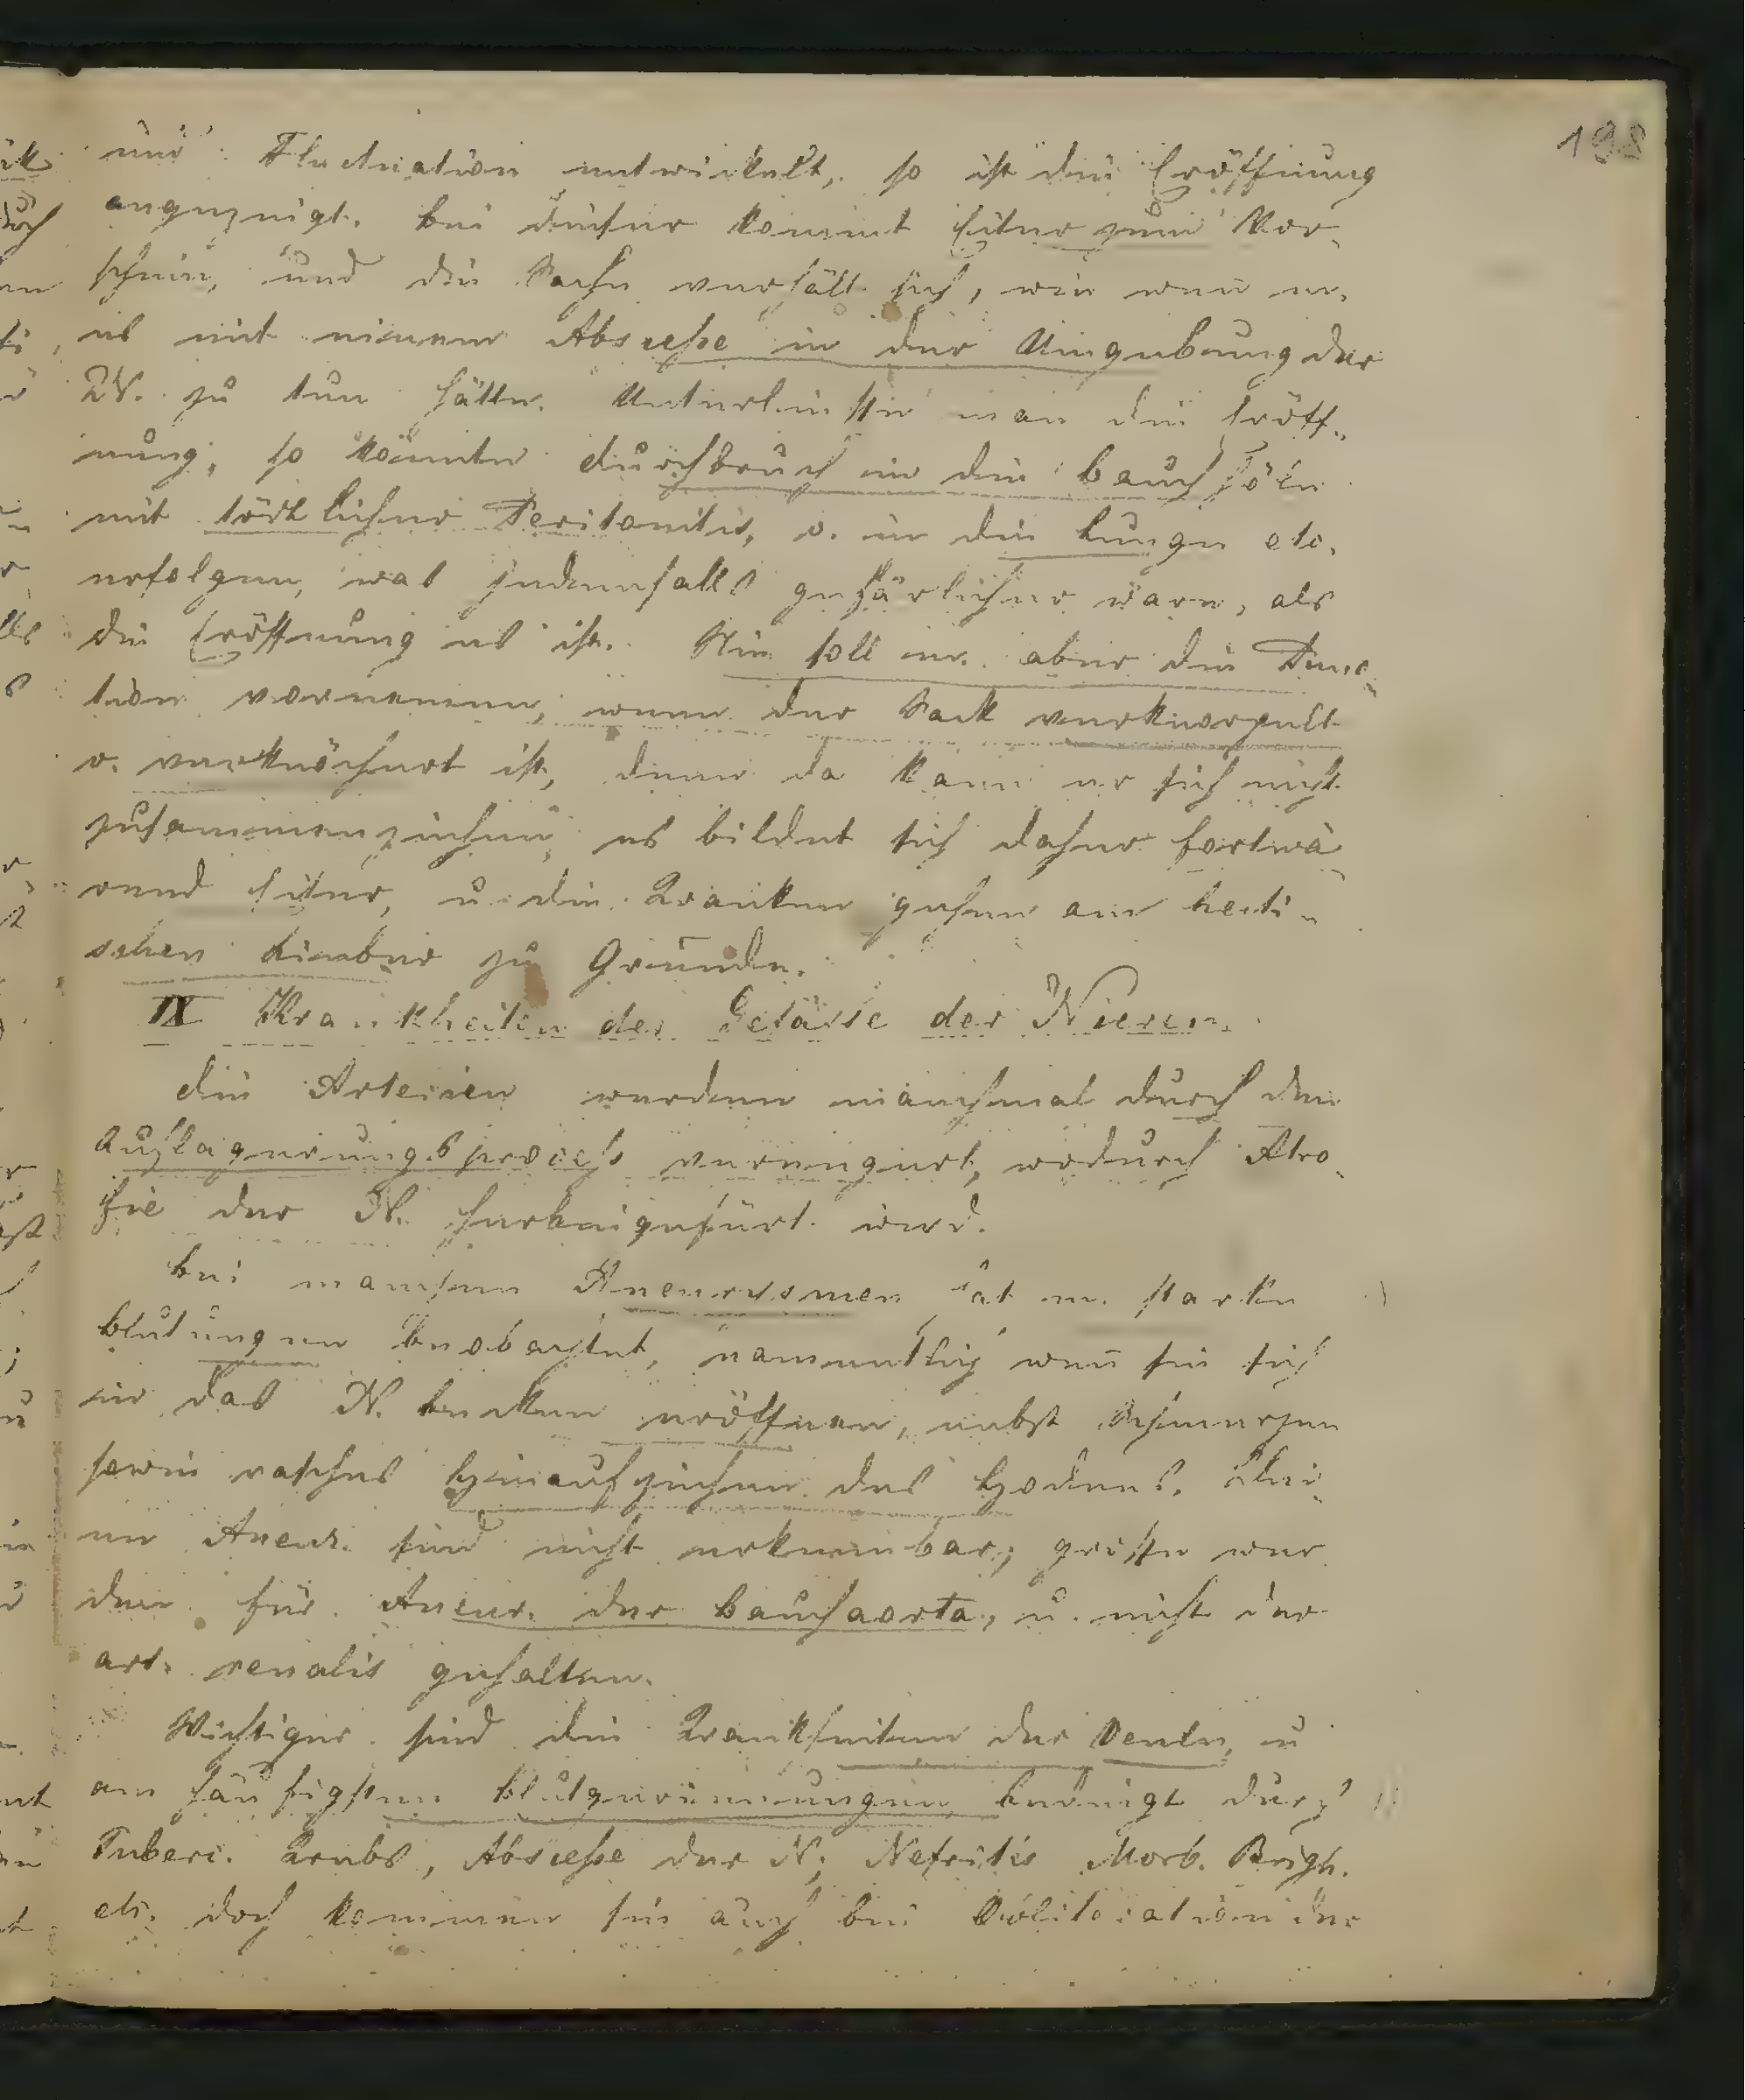 198
und Fluctuation entwickelt, so ist die Eröffnung
angezeigt. bei dieser kommt Eiter zum Vor-
schein, und die Sache verhält sich, wie wenn m.
es mit einem Abscesse in der Umgebung der
N. zu tun hätte. Unterließe man die Eröff-
nung, so könnte durchbruch in die bauchhöle
mit tödtlicher Peritonitis, o. in die Lunge etc.
erfolgen, was jedenfalls gefärlicher wäre, als
die Eröffnung es ist. Nie soll m. aber die Punc-
tion vornemen, wenn der Sack verknorpelt
o. verknöchert ist, denn da kann er sich nicht
zusammenziehen, es bildet sich daher fortwä-
rend Eiter, u. die Kranken gehen am hecti-
schen Fieber zu Grunde.
IX Krankheiten der Gefässe der Nieren.
die Arterien werden manchmal durch den
Auflagerungsprocess verengert, wodurch Atro-
fie der N. herbeigefürt wird.
bei manchen Aneurysmen hat m. starke
blutungen beobachtet, namentlich wenn sie sich
in das N. becken eröffnen, nebst Schmerzen
sowie rasches Hinaufziehen des Hodens. Klei-
ne Aneur. sind nicht erkennbar; größe wer
den für Aneur. der bauchaorta, u. nicht der
art. renalis gehalten.
Wichtiger sind die Krankheiten der Venen, u
am häufigsten blutgerinnungen, bedingt durch
Tuberc. Krebs, Abscesse der N; Nefritis Morb. Brigh.
etc. doch kommen sie auch bei der